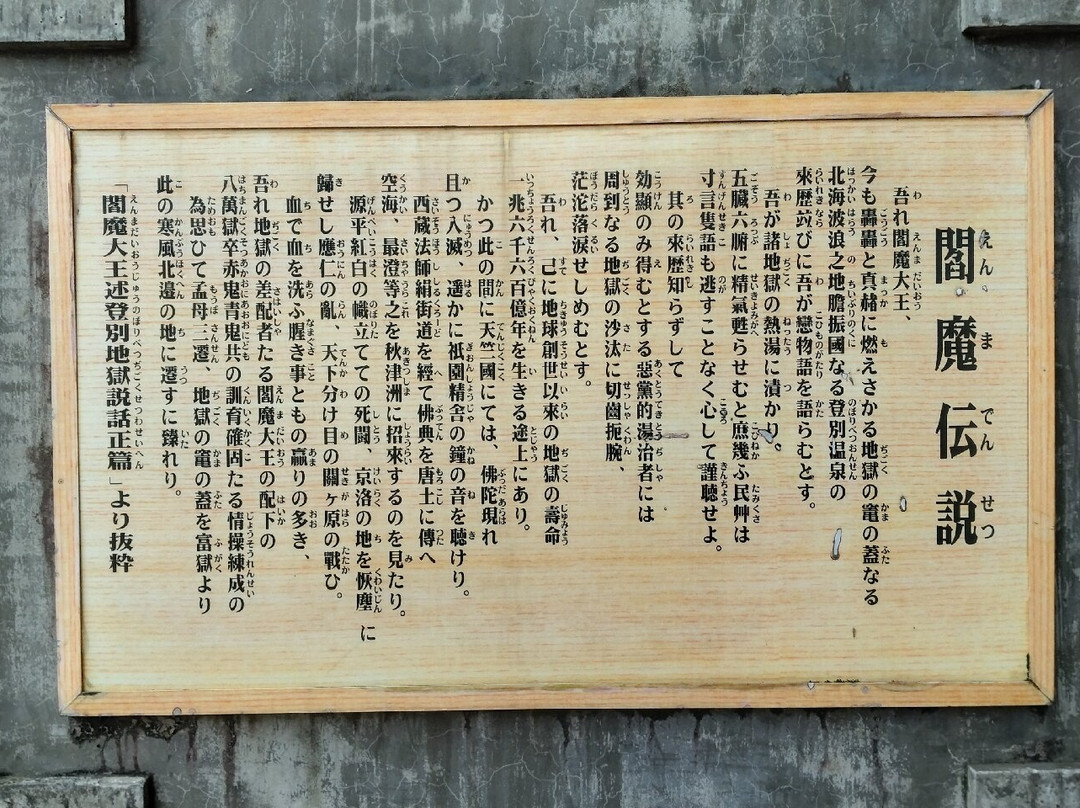 閻魔伝説
吾れ閻魔大王、
今も轟轟と真赭に燃えさかる地獄の竃の蓋なる
北海波浪之地膽振國なる登別温泉の
來歴竝びに吾が戀物語を語らむとす。
吾が諸地獄の熱湯に漬かり。
五臓六腑に精氣甦らせむと庶幾ふ民艸は
寸言隻語も逃すことなく心して謹聴せよ。
其の來歴知らずして
効顯のみ得むとする惡黨的湯治者には
周到なる地獄の沙汰に切齒扼腕、
茫沱落涙せしめむとす。
吾れ、己に地球創世以來の地獄の壽命
一兆六千六百億年を生きる途上にあり。
かつ此の間に天竺國にては、佛陀現れ
且つ入滅、遥かに祇園精舎の鐘の音を聴けり。
西蔵法師絹街道を經て佛典を唐土に傳へ
空海、最澄等之を秋津洲に招來するのを見たり。
源平紅白の幟立てての死闘、京洛の地を恢塵に
歸せし應仁の亂、天下分け目の關ヶ原の戰ひ。
血で血を洗ふ腥き事ともの贏りの多き、
吾れ地獄の差配者たる閻魔大王の配下の
八萬獄卒赤鬼青鬼共の訓育確固たる情操練成の
為思ひて孟母三遷、地獄の竃の蓋を富獄より
此の寒風北邉の地に遷すに臻れり。
「閻魔大王述登別地獄説話正篇」より抜粋